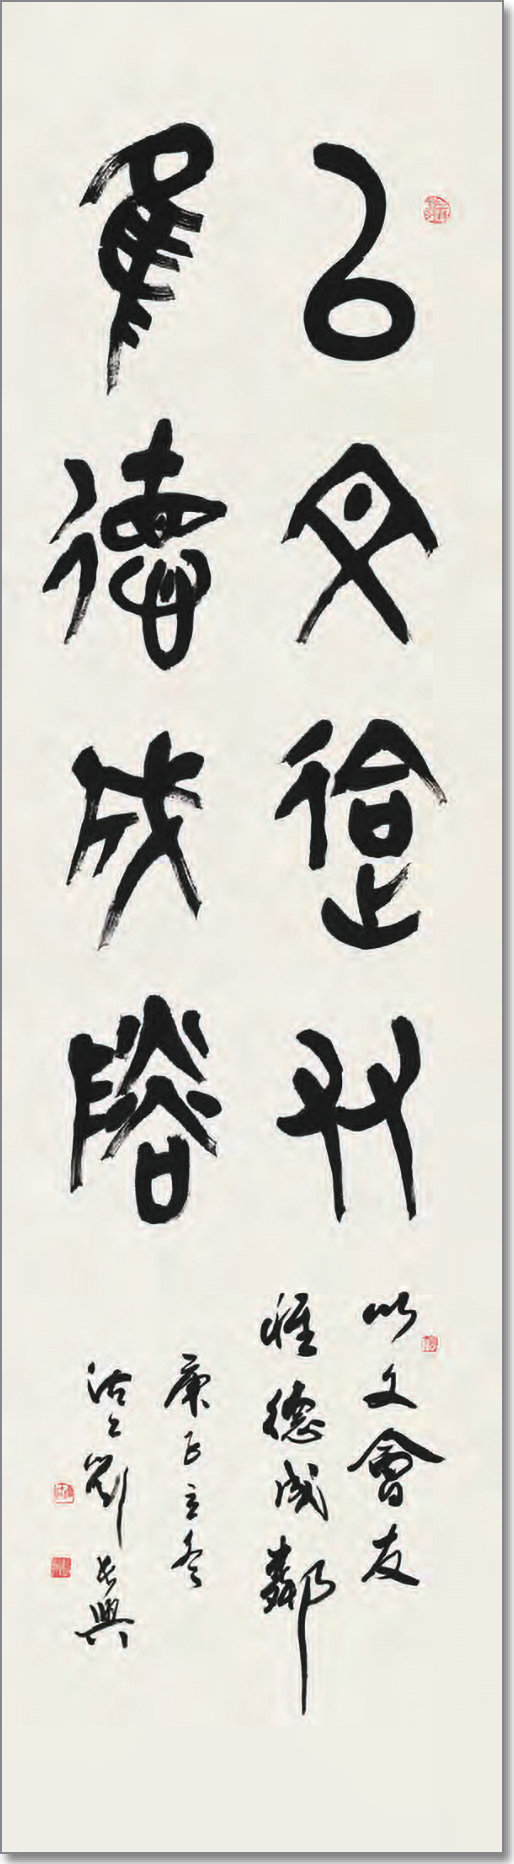 以文會友
隹德成鄰
以文會友
惟德成鄰
庚子立冬
沽上劉長興